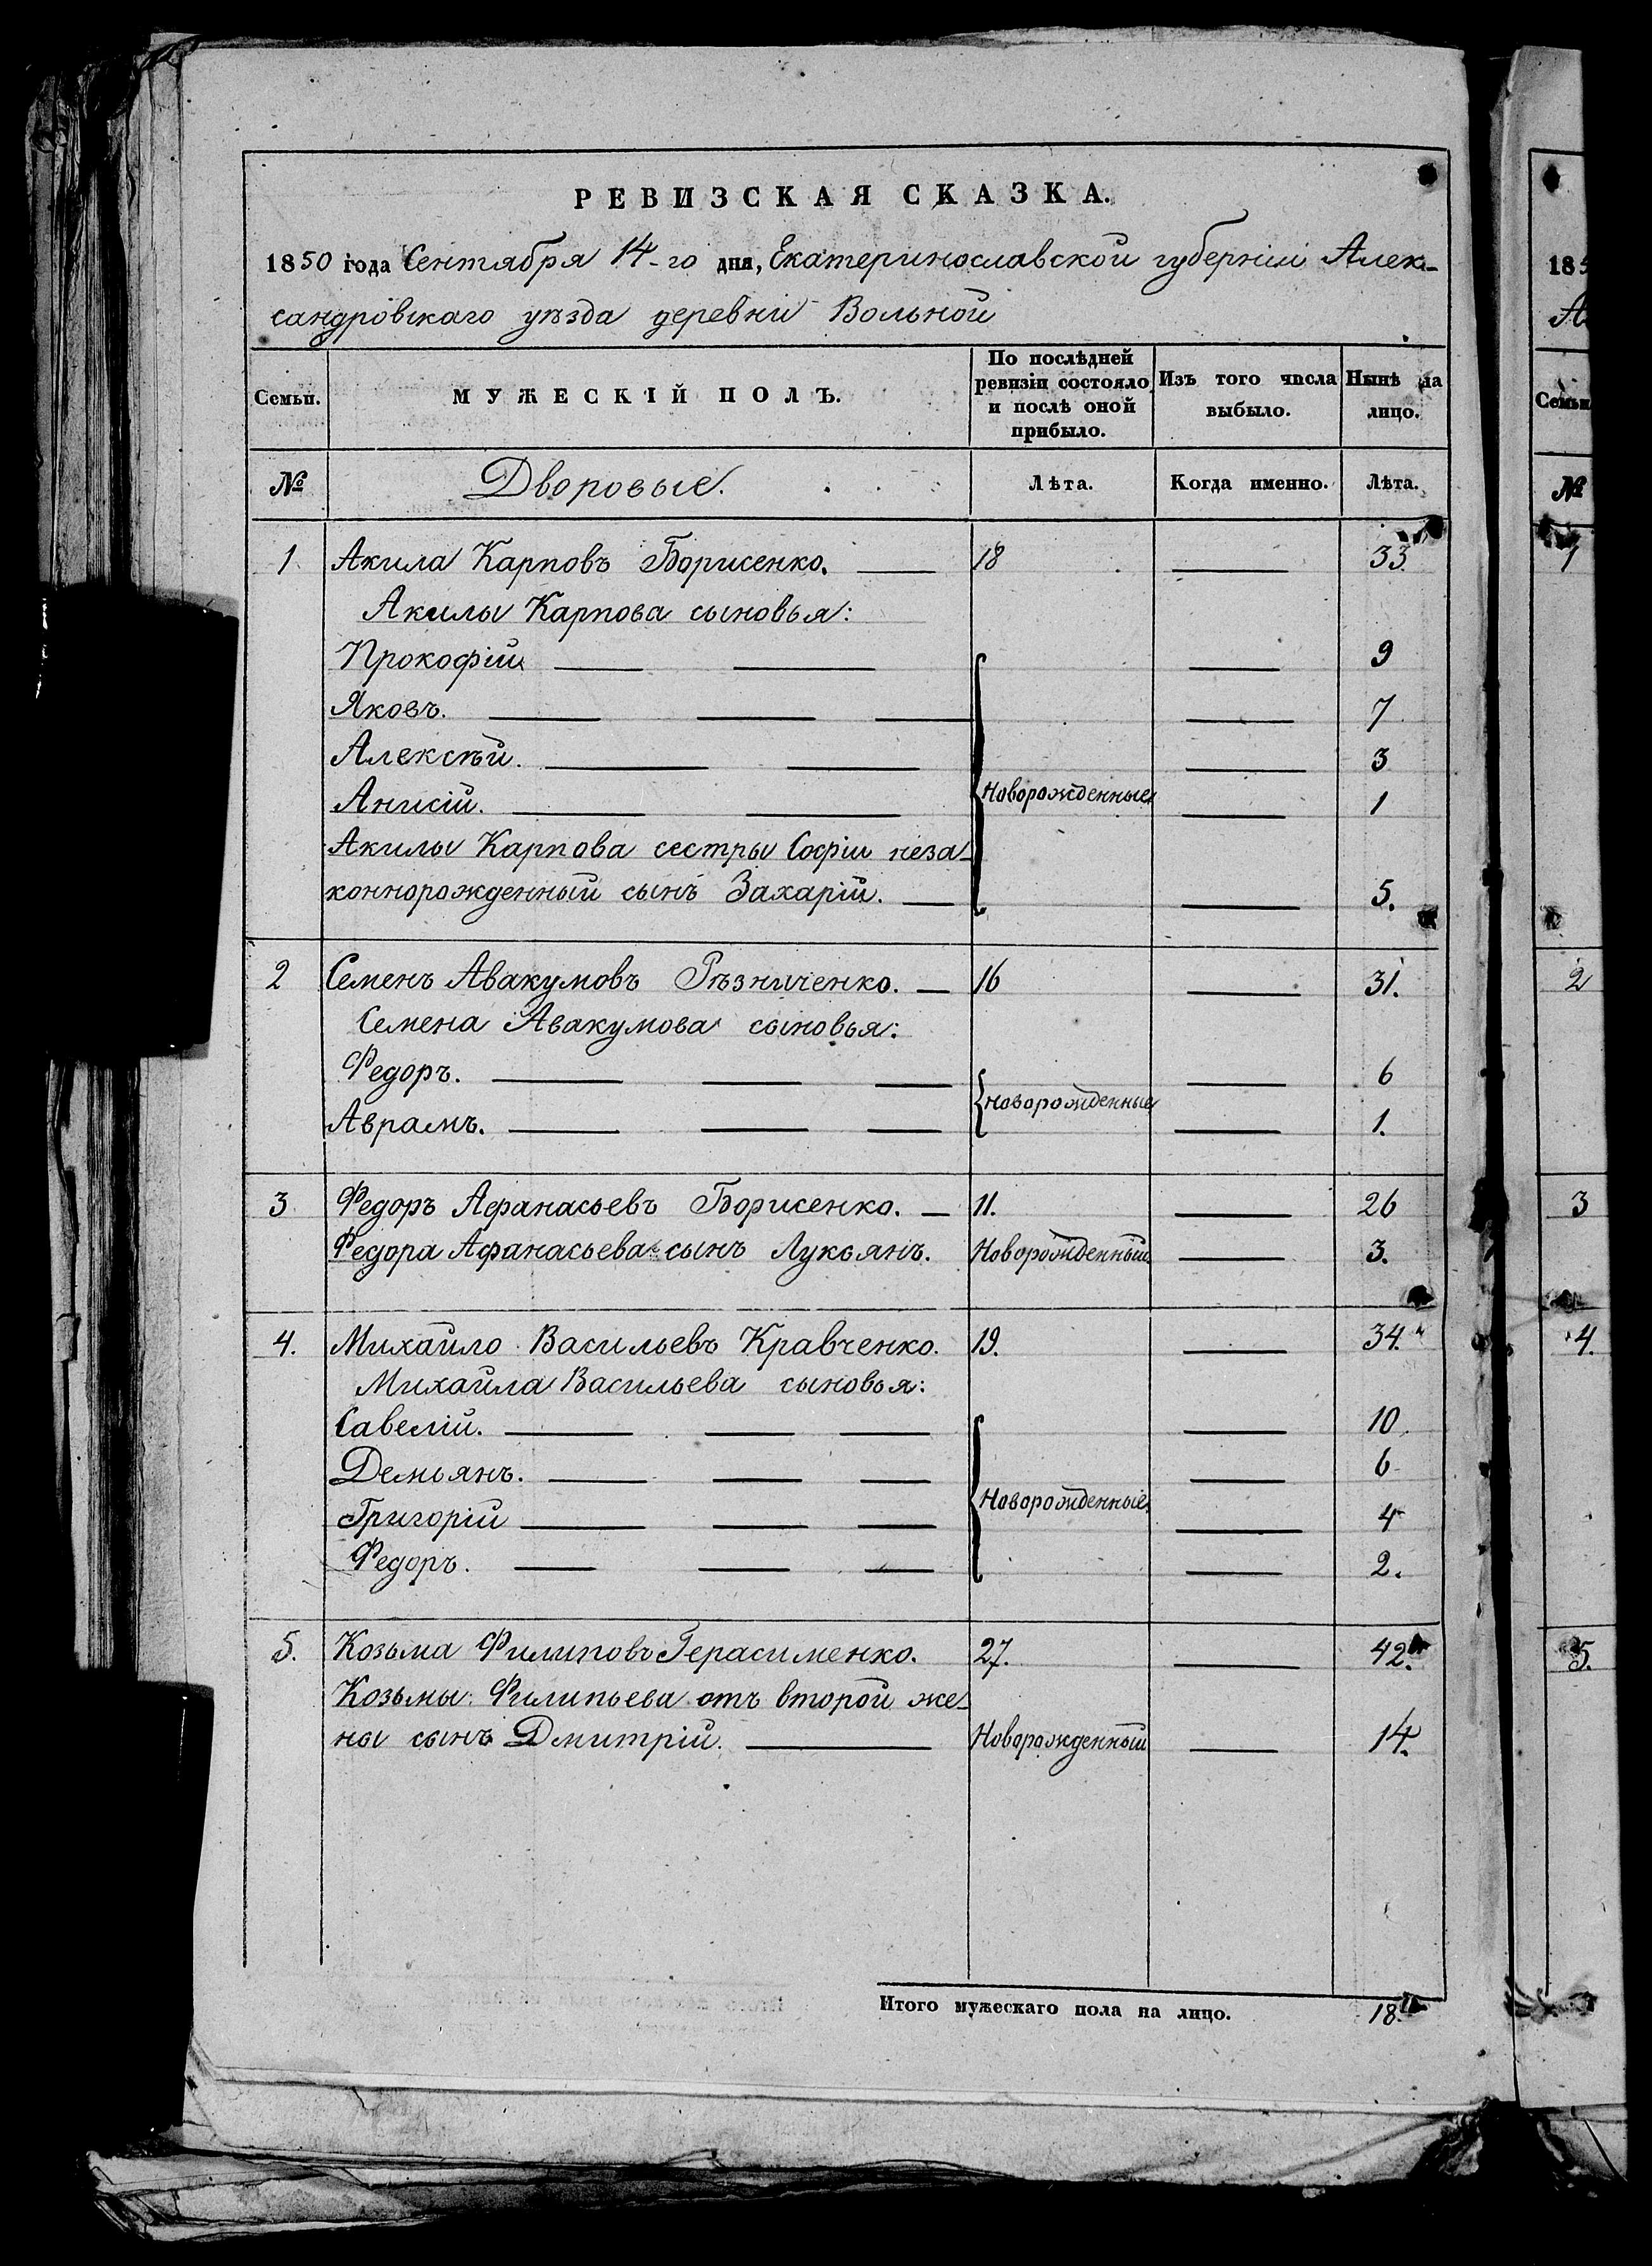 РЕВИЗСКАЯ СКАЗКА.
1850 года Сентября 14-го дня, Екатеринославской губерніи Алек-
сандровскаго уѣзда деревни Вольной
Семьи. МУЖЕСКІЙ ПОЛЪ. По послѣдней ревизіи состояло и послѣ оной прибыло. Изъ того числа выбыло. Нынѣ на лицо.
№ Дворовые. Лѣта. Когда именно. Лѣта.
1 Акила Карповъ Борисенко. 18 33
Акилы Карпова сыновья:
Прокофій 9
Яковъ. 7
Алексѣй. 3
Анисій. Новорожденные 1
Акилы Карпова сестры Софіи неза-
коннорожденный сынъ Захарій. 5.
2 Семенъ Авакумовъ Рѣзниченко. 16 31.
Семена Авакумова сыновья:
Федоръ. 6
Новорожденные
Аврамъ. 1.
3 Федоръ Афанасьевъ Борисенко. 11. 26
Федора Афанасьева сынъ Лукьянъ. Новорожденный 3.
4. Михайло Васильевъ Кравченко. 19. 34.
Михайла Васильева сыновья:
Савелій. 10
Демьянъ. 6
Новорожденные
Григорій 4
Федоръ. 2.
5. Козьма Филиповъ Герасименко. 27. 42.
Козьмы Филипьева отъ второй же-
ны сынъ Дмитрій. Новорожденный 14.
Итого мужескаго пола на лицо. 18.
185
А
Семьи
№
1
2
3
4.
5.